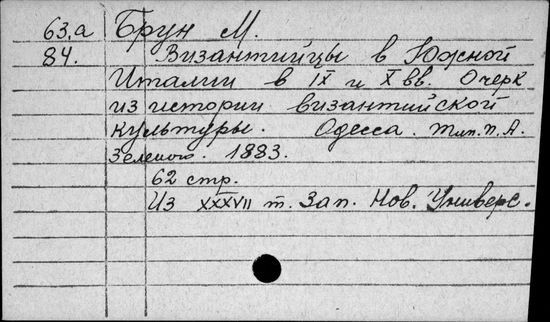 63.а Брун М.
84. Византийцы в Южной
Италии в IX и X вв. Очерк
из истории византийской
культуры. Одесса. Тип. П.А.
Зеленого. 1883.
62 стр.
Из XXXVII т. Зап. Нов. Универс.